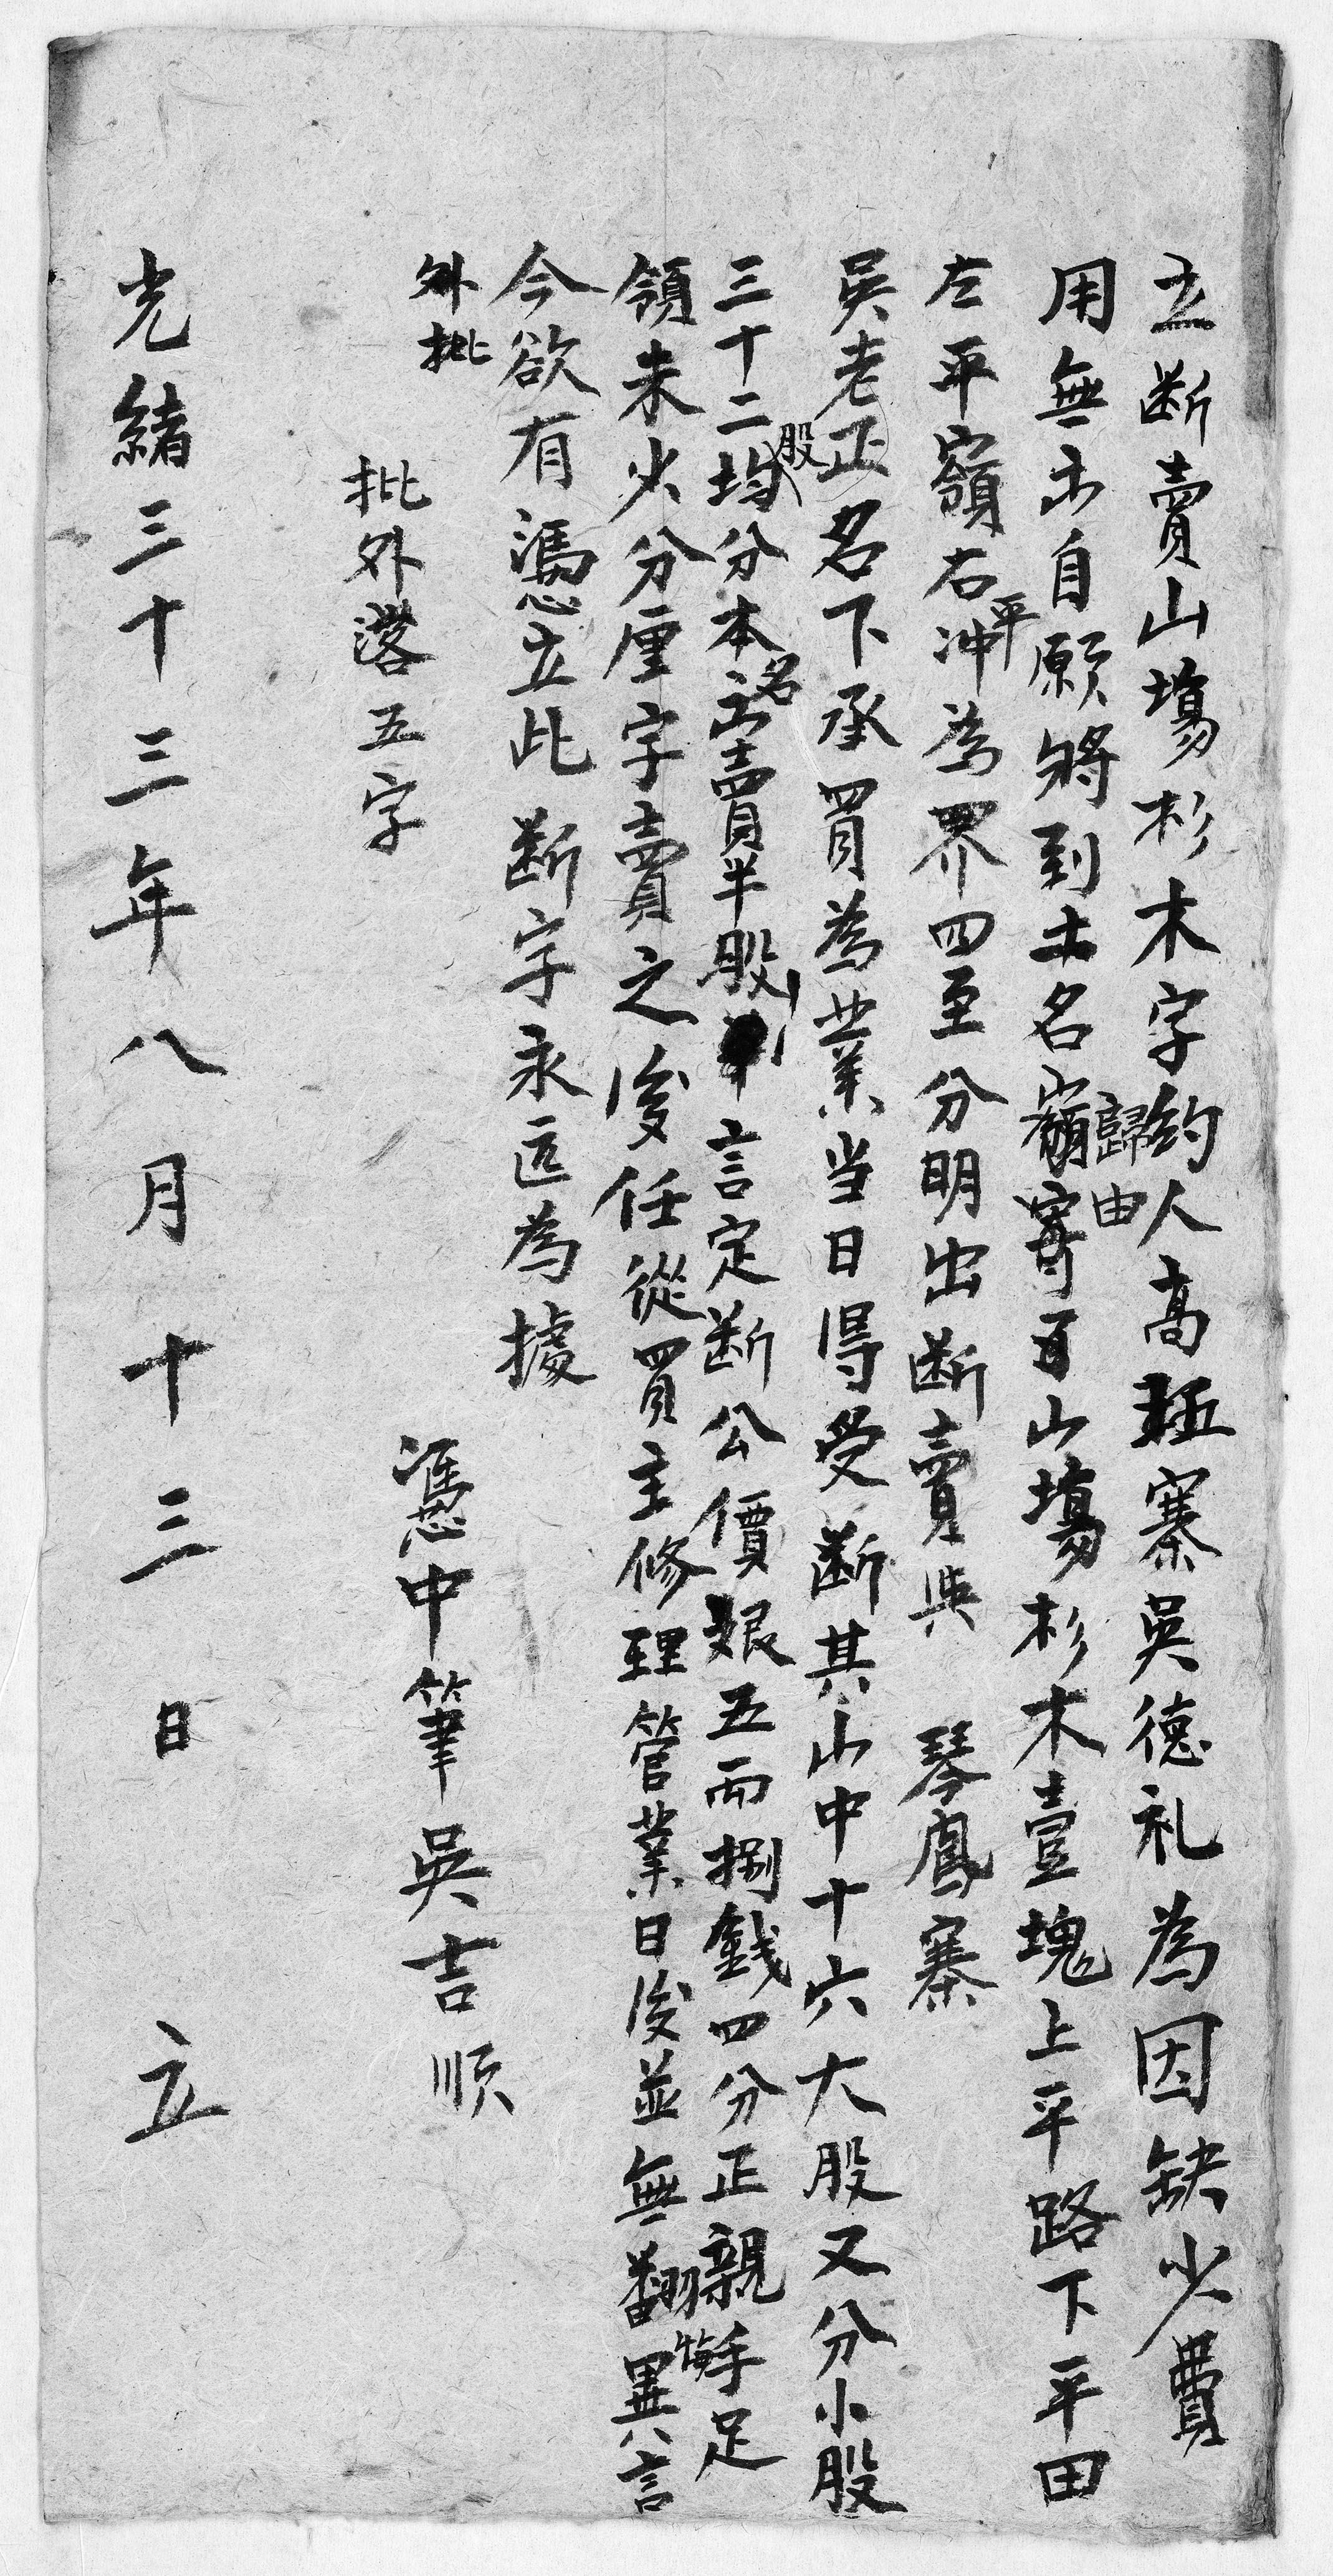 立断賣山塲杉木字約人高㽏寨吳德礼為因缺少費
用無出自願將到土名嶺歸寄由百山塲杉木壹塊上平路下平田
左平嶺右平冲為界四至分明出断賣與 琴鳳寨
吳老正名下承買為業当日得受断其山中十六大股又分小股
三十二股均分本名出賣半股言定断公價銀五両捌錢四分正親手足
領未少分厘字賣之後任從買主修理管業日後並無翻悔異言
今欲有憑立此断字永远為據
外批
批外落五字
憑中筆吳吉順
光緒三十三年八月十三日 立